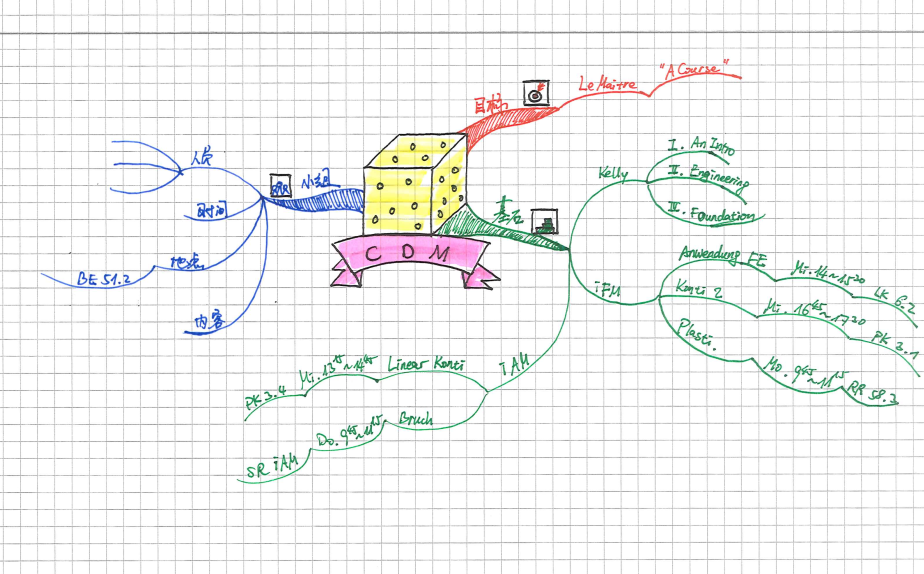 CDM
目标
Le Maitre
"A Course"
基石
Kelly
I. An Intro
II. Engineering
III. Foundation
iFM
Anwendung FE
Mi. 14~15³⁰
LK 6.2
Konti 2
Mi. 16⁴⁵~17³⁰
PK 3.1
Plasti.
Mo. 9⁴⁵~11¹⁵
RR 58.3
iAM
Linear Konti
Mi. 13¹⁵~14⁴⁵
PK 3.4
Bruch
Do. 9⁴⁵~11¹⁵
SR iAM
小组
人员
时间
地点
BE 51.2
内容